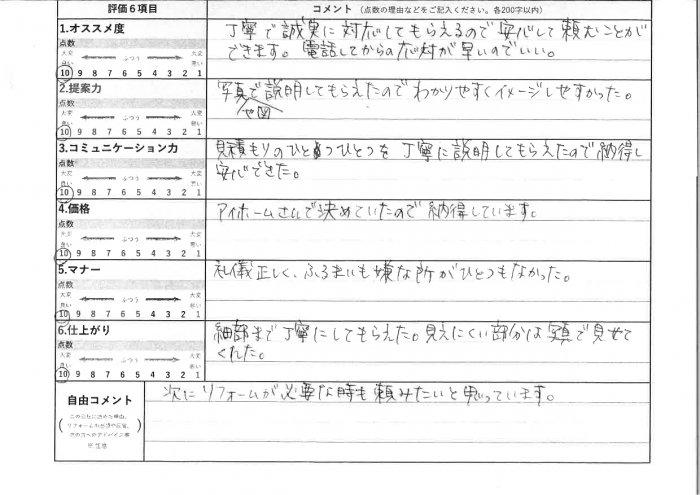 評価６項目
コメント（点数の理由などをご記入ください。各200字以内）
1.オススメ度
点数
大変 良い ふつう 大変 悪い
10 9 8 7 6 5 4 3 2 1
丁寧で誠実に対応してもらえるので安心して頼むことが
できます。電話してからの応対が早いのでいい。
2.提案力
点数
大変 良い ふつう 大変 悪い
10 9 8 7 6 5 4 3 2 1
写真で説明してもらえたのでわかりやすくイメージしやすかった。
や図
3.コミュニケーション力
点数
大変 良い ふつう 大変 悪い
10 9 8 7 6 5 4 3 2 1
見積もりのひとつひとつを丁寧に説明してもらえたので納得し
安心できた。
4.価格
点数
大変 良い ふつう 大変 悪い
10 9 8 7 6 5 4 3 2 1
アイホームさんで決めていたので納得しています。
5.マナー
点数
大変 良い ふつう 大変 悪い
10 9 8 7 6 5 4 3 2 1
礼儀正しく、ふるまいも嫌な所がひとつもなかった。
6.仕上がり
点数
大変 良い ふつう 大変 悪い
10 9 8 7 6 5 4 3 2 1
細部まで丁寧にしてもらえた。見えにくい部分は写真で見せて
くれた。
自由コメント
次にリフォームが必要な時も頼みたいと思っています。